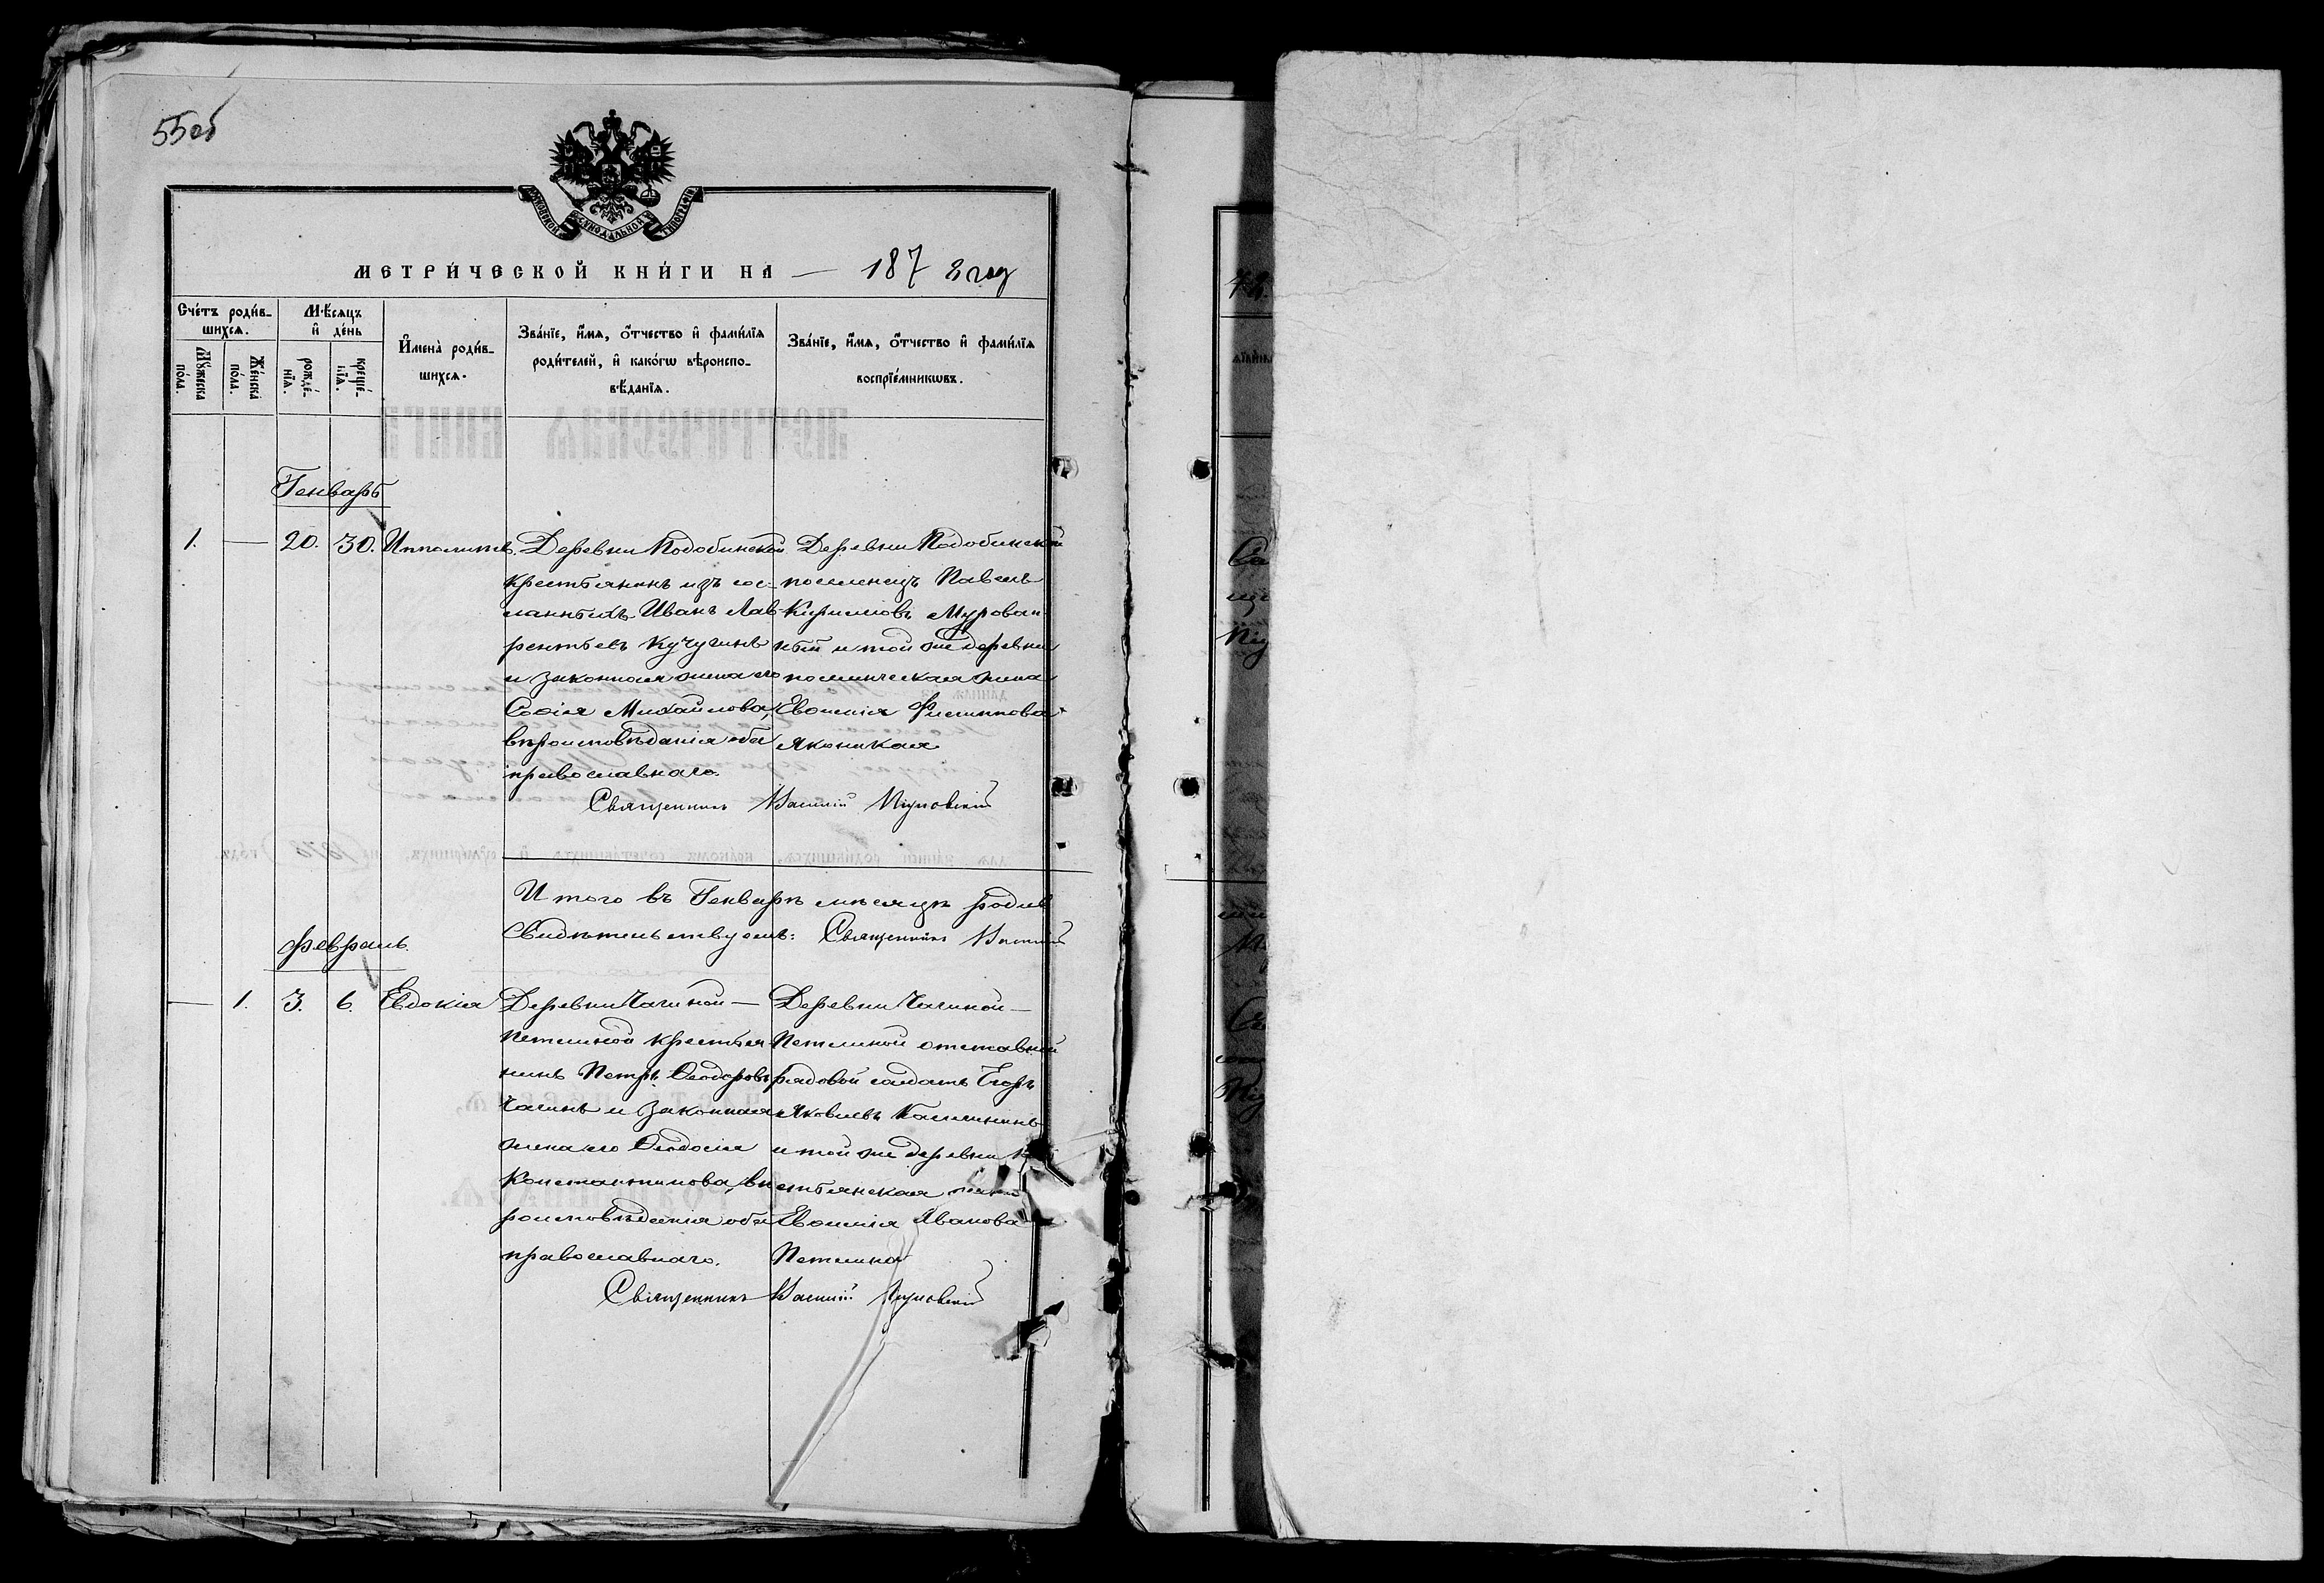 55об
МОСКОВСКОЙ СѴНОДАЛЬНОЙ ТИПОГРАФІИ
МЕТРИ́ЧЕСКОЙ КНИ́ГИ НА — 1878 год
Сче́тъ роди́вшихся.
Мꙋ́жеска по́ла.
Же́нска по́ла.
Мѣ́сяцъ и҆ де́нь
рожде́нїѧ.
креще́нїѧ.
И҆мена̀ роди́вшихсѧ.
Зва́нїе, и҆́мѧ, ѻ҆́тчество и҆ фами́лїѧ
роди́телей, и҆ како́гѡ вѣроиспо-
вѣ́данїѧ.
Зва́нїе, и҆́мѧ, ѻ҆́тчество и҆ фами́лїѧ
воспрїе́мникѡвъ.
Генварь
1. — 20. 30. Ипполитъ.
Деревни Подобинской
крестьянинъ изъ сос-
ланныхъ Иванъ Лав-
рентьевъ Кучугинъ
и законная жена его
Софія Михайлова,
вѣроисповѣданія оба
православнаго.
Деревни Подобинской
поселенецъ Павелъ
Кириловъ Мурован-
ный и той же деревни
поселенческая жена
Евфимія Филиппова
Священникъ Василій
Итого въ Генварѣ мѣсяцѣ родив
Свидѣтельствуемъ: Священникъ Василій
Февраль.
— 1. 3. 6. Евдокія
Деревни Чагиной —
Петелиной крестья-
нинъ Петръ Ѳеодоровъ
Чагинъ и законная
жена его Ѳеодосія
Константинова, вѣ-
роисповѣданія оба
православнаго.
Деревни Чагиной —
Петелиной отставной
рядовой солдатъ Егоръ
Яковлевъ Калининъ
и той же деревни к
естьянская жена
Евфимія Иванова
Петелина
Священникъ Василій